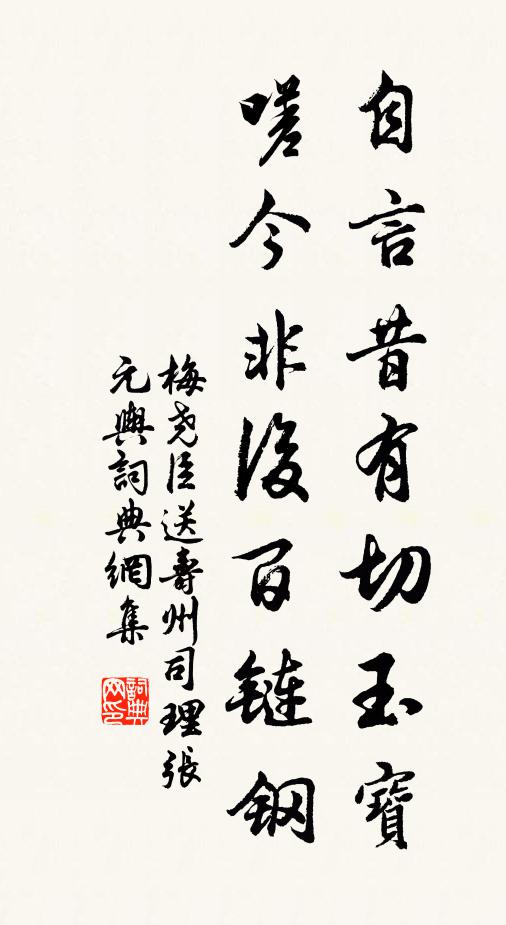 自言昔有切玉寶
嗟今非復百鏈鋼
梅堯臣送壽州司理張
元輿詞典網集
詞典网印